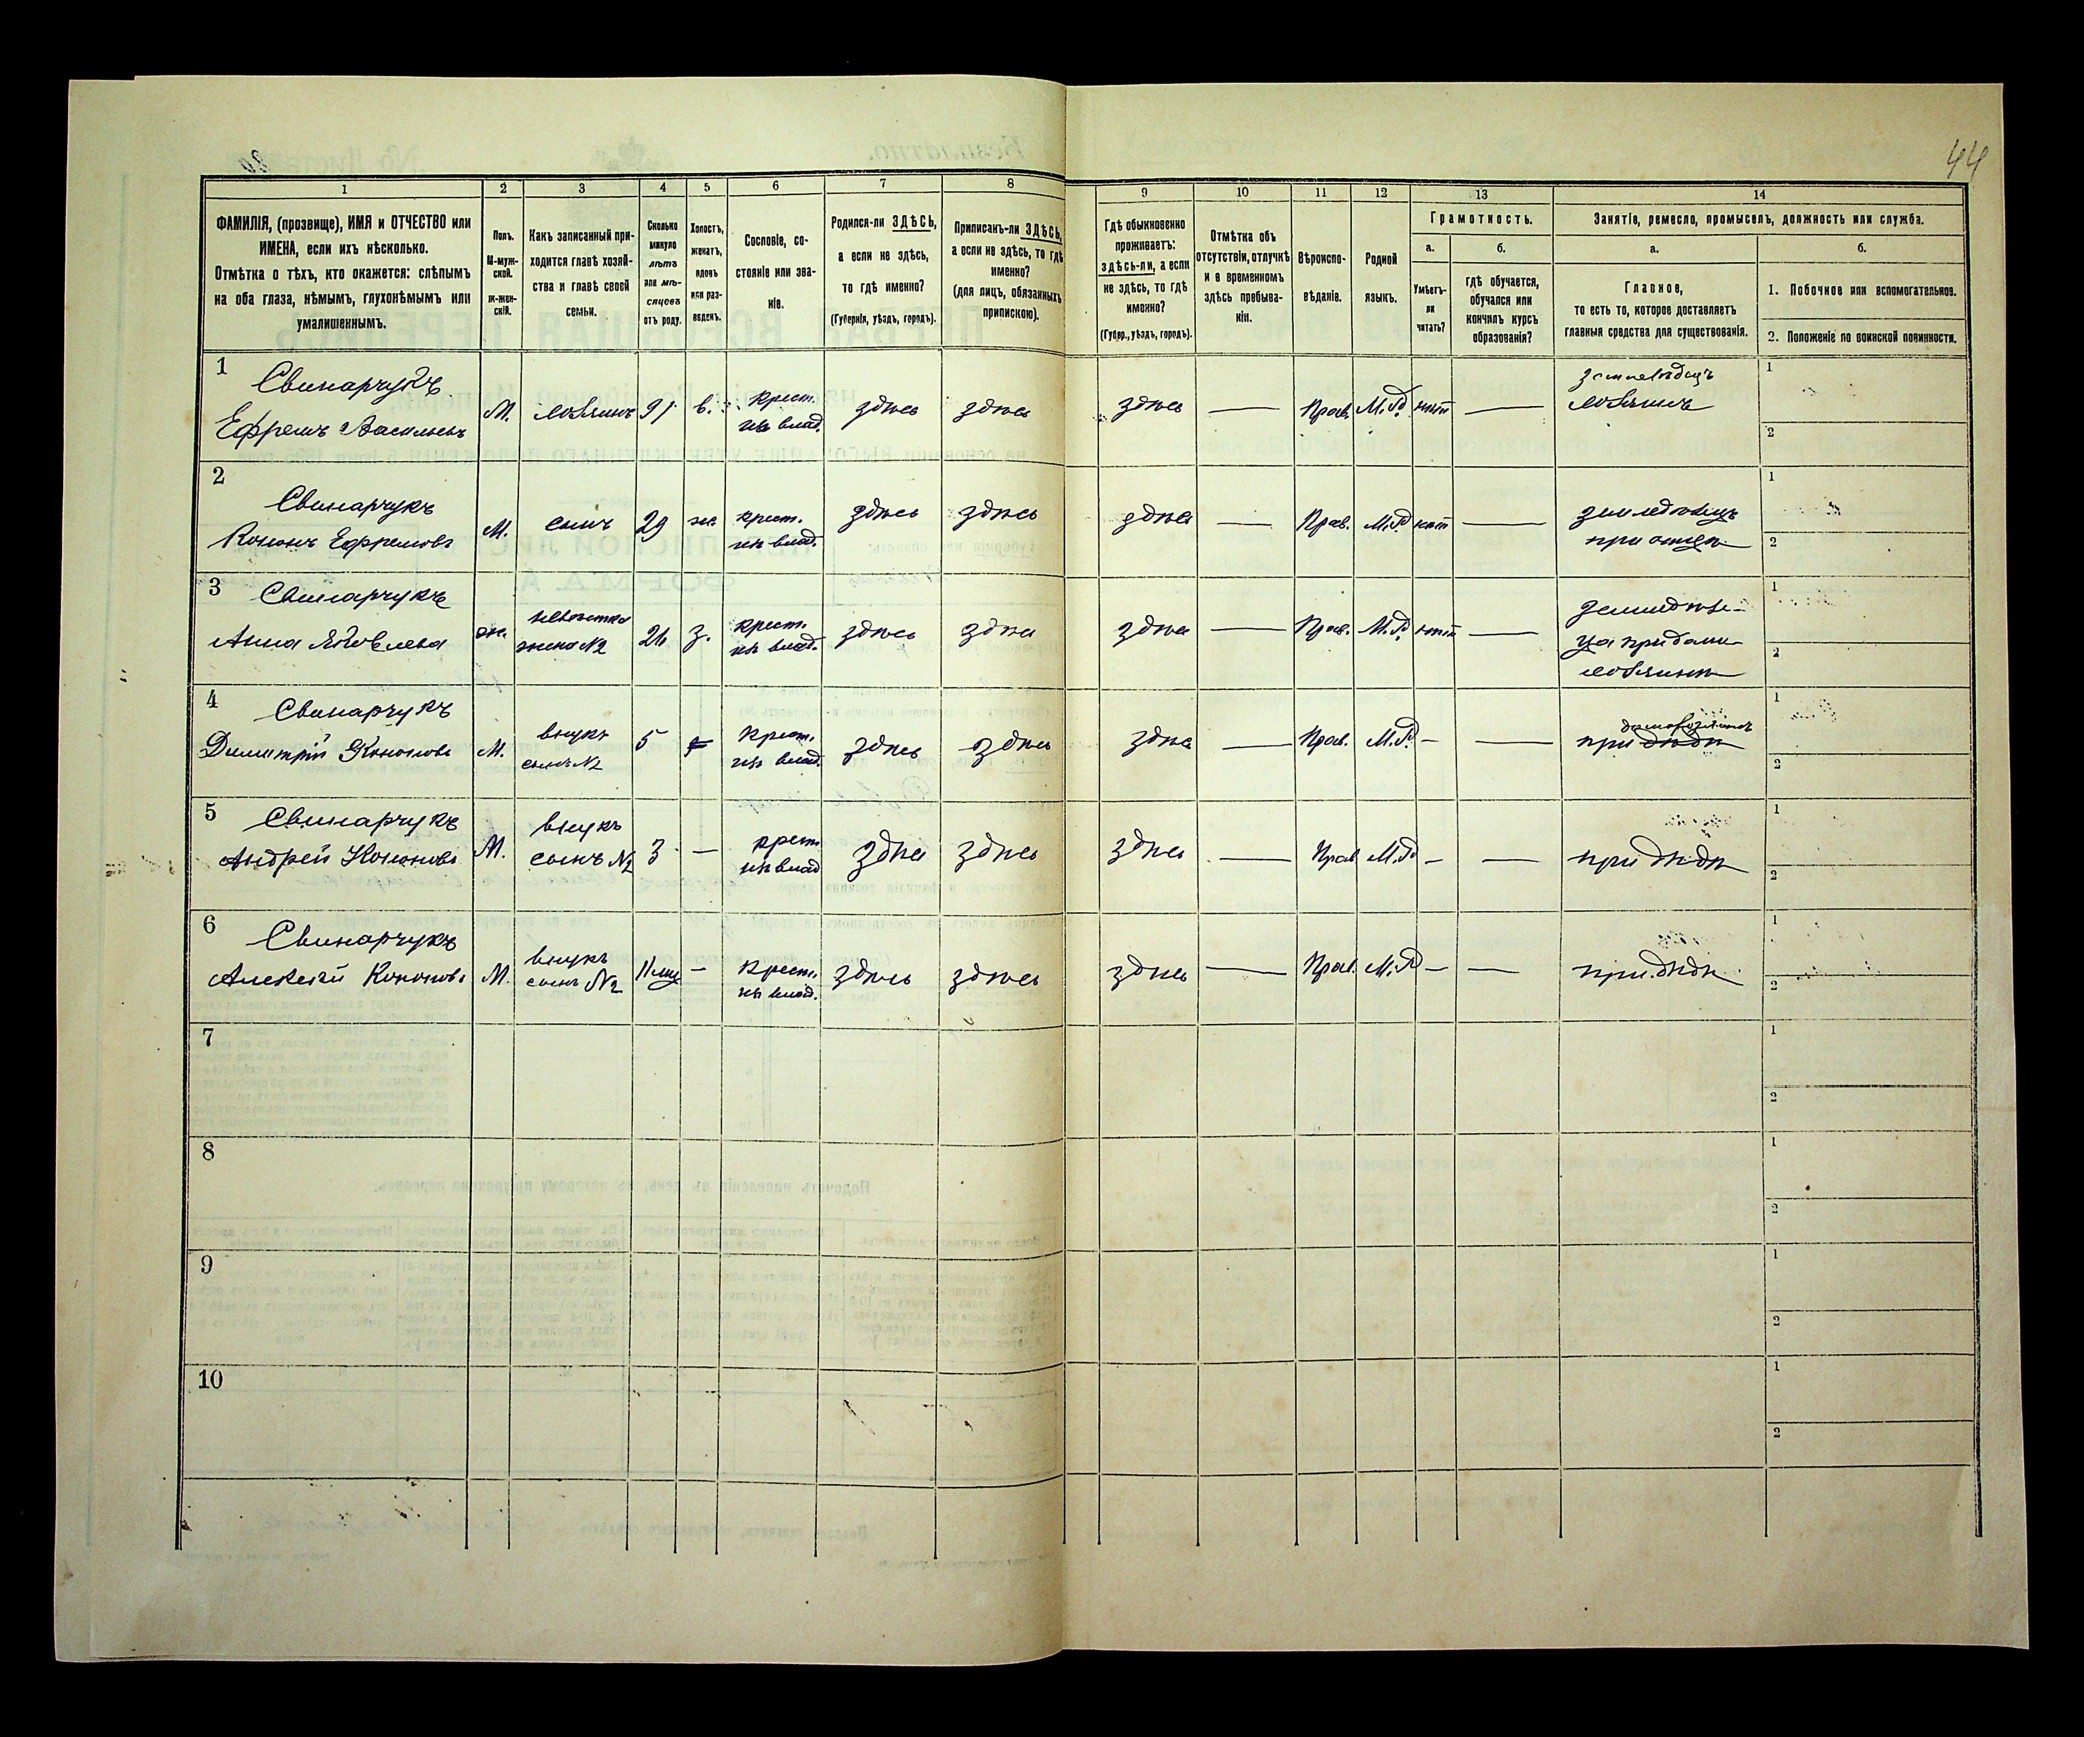 44
1 2 3 4 5 6 7 8 9 10 11 12 13 14
ФАМИЛІЯ, (прозвище), ИМЯ и ОТЧЕСТВО или
ИМЕНА, если ихъ нѣсколько.
Отмѣтка о тѣхъ, кто окажется: слѣпымъ
на оба глаза, нѣмымъ, глухонѣмымъ или
умалишеннымъ.
Полъ.
М-муж-
ской.
ж-жен-
скій.
Какъ записанный при-
ходится главѣ хозяй-
ства и главѣ своей
семьи.
Сколько
минуло
лѣтъ
или мѣ-
сяцевъ
отъ роду.
Холостъ,
женатъ,
вдовъ
или раз-
веденъ.
Сословіе, со-
стояніе или зва-
ніе.
Родился-ли ЗДѢСЬ,
а если не здѣсь,
то гдѣ именно?
(Губернія, уѣздъ, городъ).
Приписанъ-ли ЗДѢСЬ,
а если не здѣсь, то гдѣ
именно?
(для лицъ, обязанныхъ
припискою).
Гдѣ обыкновенно
проживаетъ:
здѣсь-ли, а если
не здѣсь, то гдѣ
именно?
(Губер., уѣздъ, городъ).
Отмѣтка объ
отсутствіи, отлучкѣ
и о временномъ
здѣсь пребыва-
ніи.
Вѣроиспо-
вѣданіе.
Родной
языкъ.
Грамотность.
а.
б.
Умѣетъ-
ли
читать?
гдѣ обучается,
обучался или
кончилъ курсъ
образованія?
Занятіе, ремесло, промыселъ, должность или служба.
а.
б.
Главное,
то есть то, которое доставляетъ
главныя средства для существованія.
1. Побочное или вспомогательное.
2. Положеніе по воинской повинности.
1 Свинарчукъ
Ефремъ Васильевъ
М. хозяинъ в. Крест. изъ влад. здѣсь здѣсь здѣсь — Прав. М.Р. нѣтъ — земледѣлецъ
хозяинъ
1
2
2 Свинарчукъ
Кононъ Ефремовъ
М. сынъ 29 ж крест. изъ влад. здѣсь здѣсь здѣсь — Прав. М.Р. нѣтъ — земледѣлецъ
при отцѣ
1
2
3 Свинарчукъ
Анна
ж. невѣстка жена №2 з. крест. изъ влад. здѣсь здѣсь здѣсь — Прав. М.Р. нѣтъ — земледѣли-
ца при домо-
хозяинѣ
1
2
4 Свинарчукъ
Димитрій Кононовъ
М. внукъ сынъ №2 5 Крест. изъ влад. здѣсь здѣсь здѣсь — Прав. М.Р. — — домохозяинѣ
при дѣдѣ
1
2
5 Свинарчукъ
Андрей Кононовъ
М. внукъ сынъ №2 3 — крест. изъ влад здѣсь здѣсь здѣсь — Прав М.Р. — — при дѣдѣ
1
2
6 Свинарчукъ
Алексѣй Кононовъ
М. внукъ сынъ №2 11 мц — Крест. изъ влад. здѣсь здѣсь здѣсь — Прав. М.Р — — при дѣдѣ
1
2
7
1
2
8
1
2
9
1
2
10
1
2